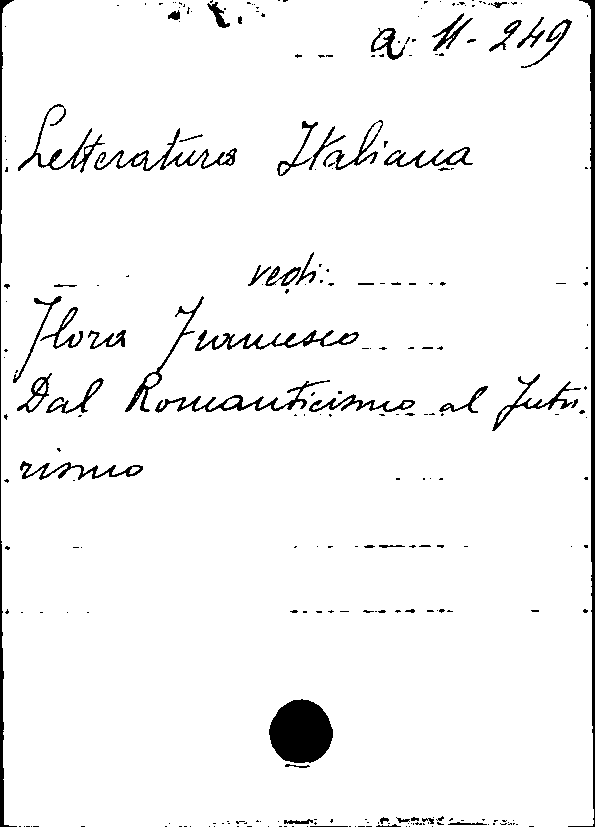 a 11-249
Letteratura Italiana
vedi:
Flora Francesco
Dal Romanticismo al Futu-
rismo